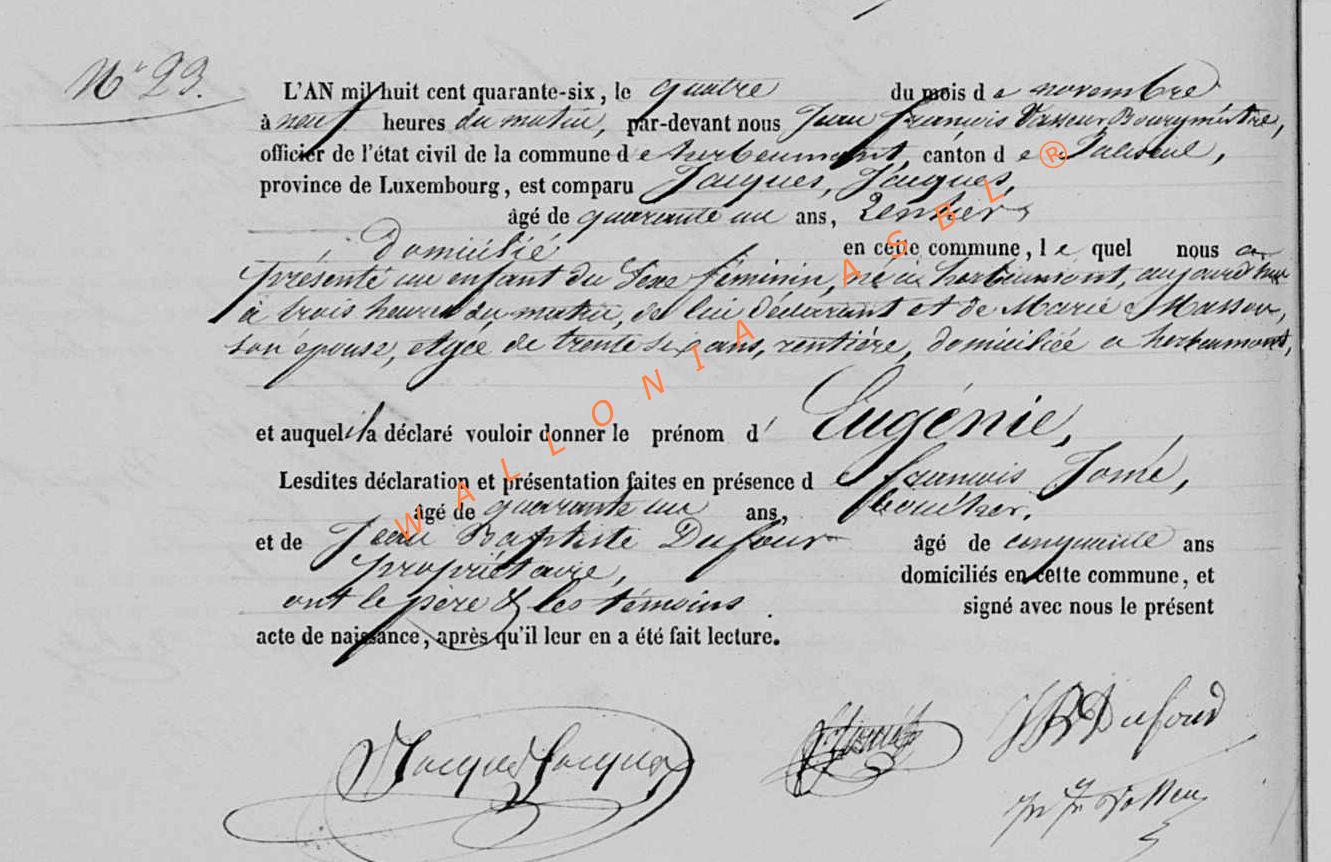 N° 23.
L'AN mil huit cent quarante-six, le quatre du mois de novembre
à neuf heures du matin, par-devant nous Jean françois Bourgméstre,
officier de l'état civil de la commune de herbeumont, canton de Paliseul,
province de Luxembourg, est comparu Jacques, Jacques,
âgé de quarante un ans, Rentier
domicilié en cette commune, le quel nous a
présenté un enfant du Sexe féminin, né à herbeumont, aujourd'hui
à trois heures du matin, de lui déclarant et de Marie Masson,
son épouse, agée de trente six ans, rentière, domiciliée a herbeumont,
et auquel il a déclaré vouloir donner le prénom d' Eugénie,
Lesdites déclaration et présentation faites en présence de françois Jomé,
âgé de quarante un ans, boucher.
et de Jean Baptiste Dufour âgé de cinquante ans
propriétaire, domiciliés en cette commune, et
ont le père & les témoins signé avec nous le présent
acte de naissance, après qu'il leur en a été fait lecture.
Jacques Jacques JB Dufour
WALLONIA ASBL ®